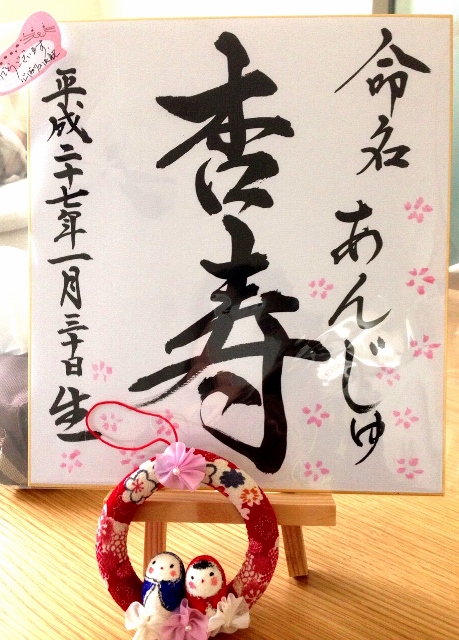 命名 あんじゅ
杏寿
平成二十七年一月三十日生